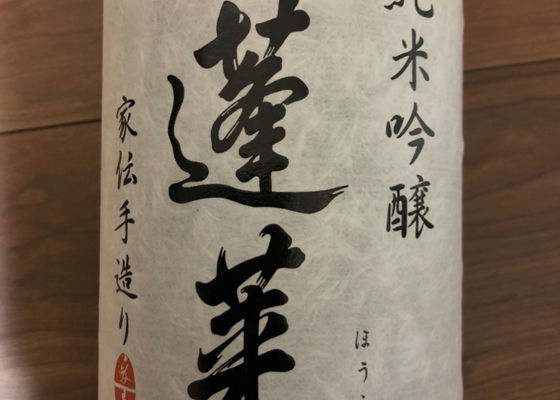 純米吟醸
蓬莱
ほう
家伝手造り